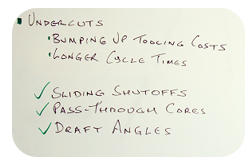 ▪ UNDERCUTS
•BUMPING UP TOOLING COSTS
•LONGER CYCLE TIMES
✓ SLIDING SHUTOFFS
✓ PASS-THROUGH CORES
✓ DRAFT ANGLES